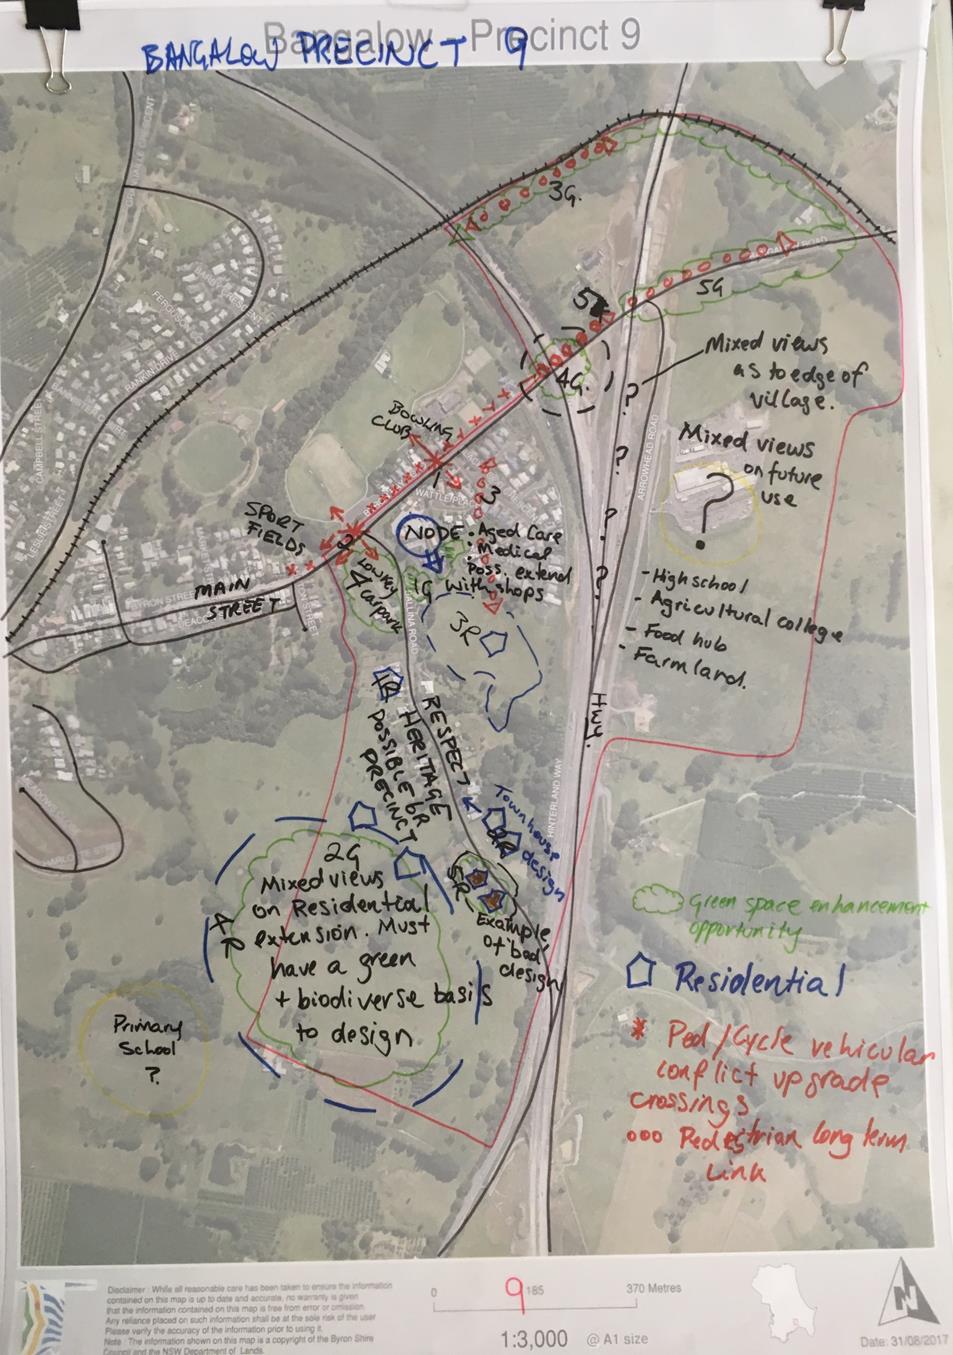 Bangalow - Precinct 9
BANGALOW PRECINCT 9
3G.
5G
5
4G.
Mixed views
as to edge of
village.
?
?
?
?
Mixed views
on future
use
?
- High school
- Agricultural college
- Food hub
- Farmland.
BOWLING
CLUB
1
WATTLE PL
3
SPORT
FIELDS
2
NODE
• Aged Care
• Medical
• Poss. extend
with shops
1G
4
Low Key
carpark
MAIN
STREET
BYRON STREET
RANKIN DRIVE
CAMPBELL STREET
ARROWHEAD ROAD
HINTERLAND WAY
3R
1R
RESPECT
HERITAGE
POSSIBLE 6R
PRECINCT
Hwy.
Townhouse
design
2R
5R
Example
of bad
design
2G
Mixed views
on Residential
extension. Must
have a green
+ biodiverse basis
to design
4R
Primary
School
?
Green space enhancement
opportunity
Residential
Ped/Cycle vehicular
conflict upgrade
crossings
ooo Pedestrian long term
Link
Disclaimer : While all reasonable care has been taken to ensure the information
contained on this map is up to date and accurate, no warranty is given
that the information contained on this map is free from error or omission.
Any reliance placed on such information shall be at the sole risk of the user
Please verify the accuracy of the information prior to using it.
Note : The information shown on this map is a copyright of the Byron Shire
Council and the NSW Department of Lands.
0 185 370 Metres
9
1:3,000 @ A1 size
N
Date: 31/08/2017